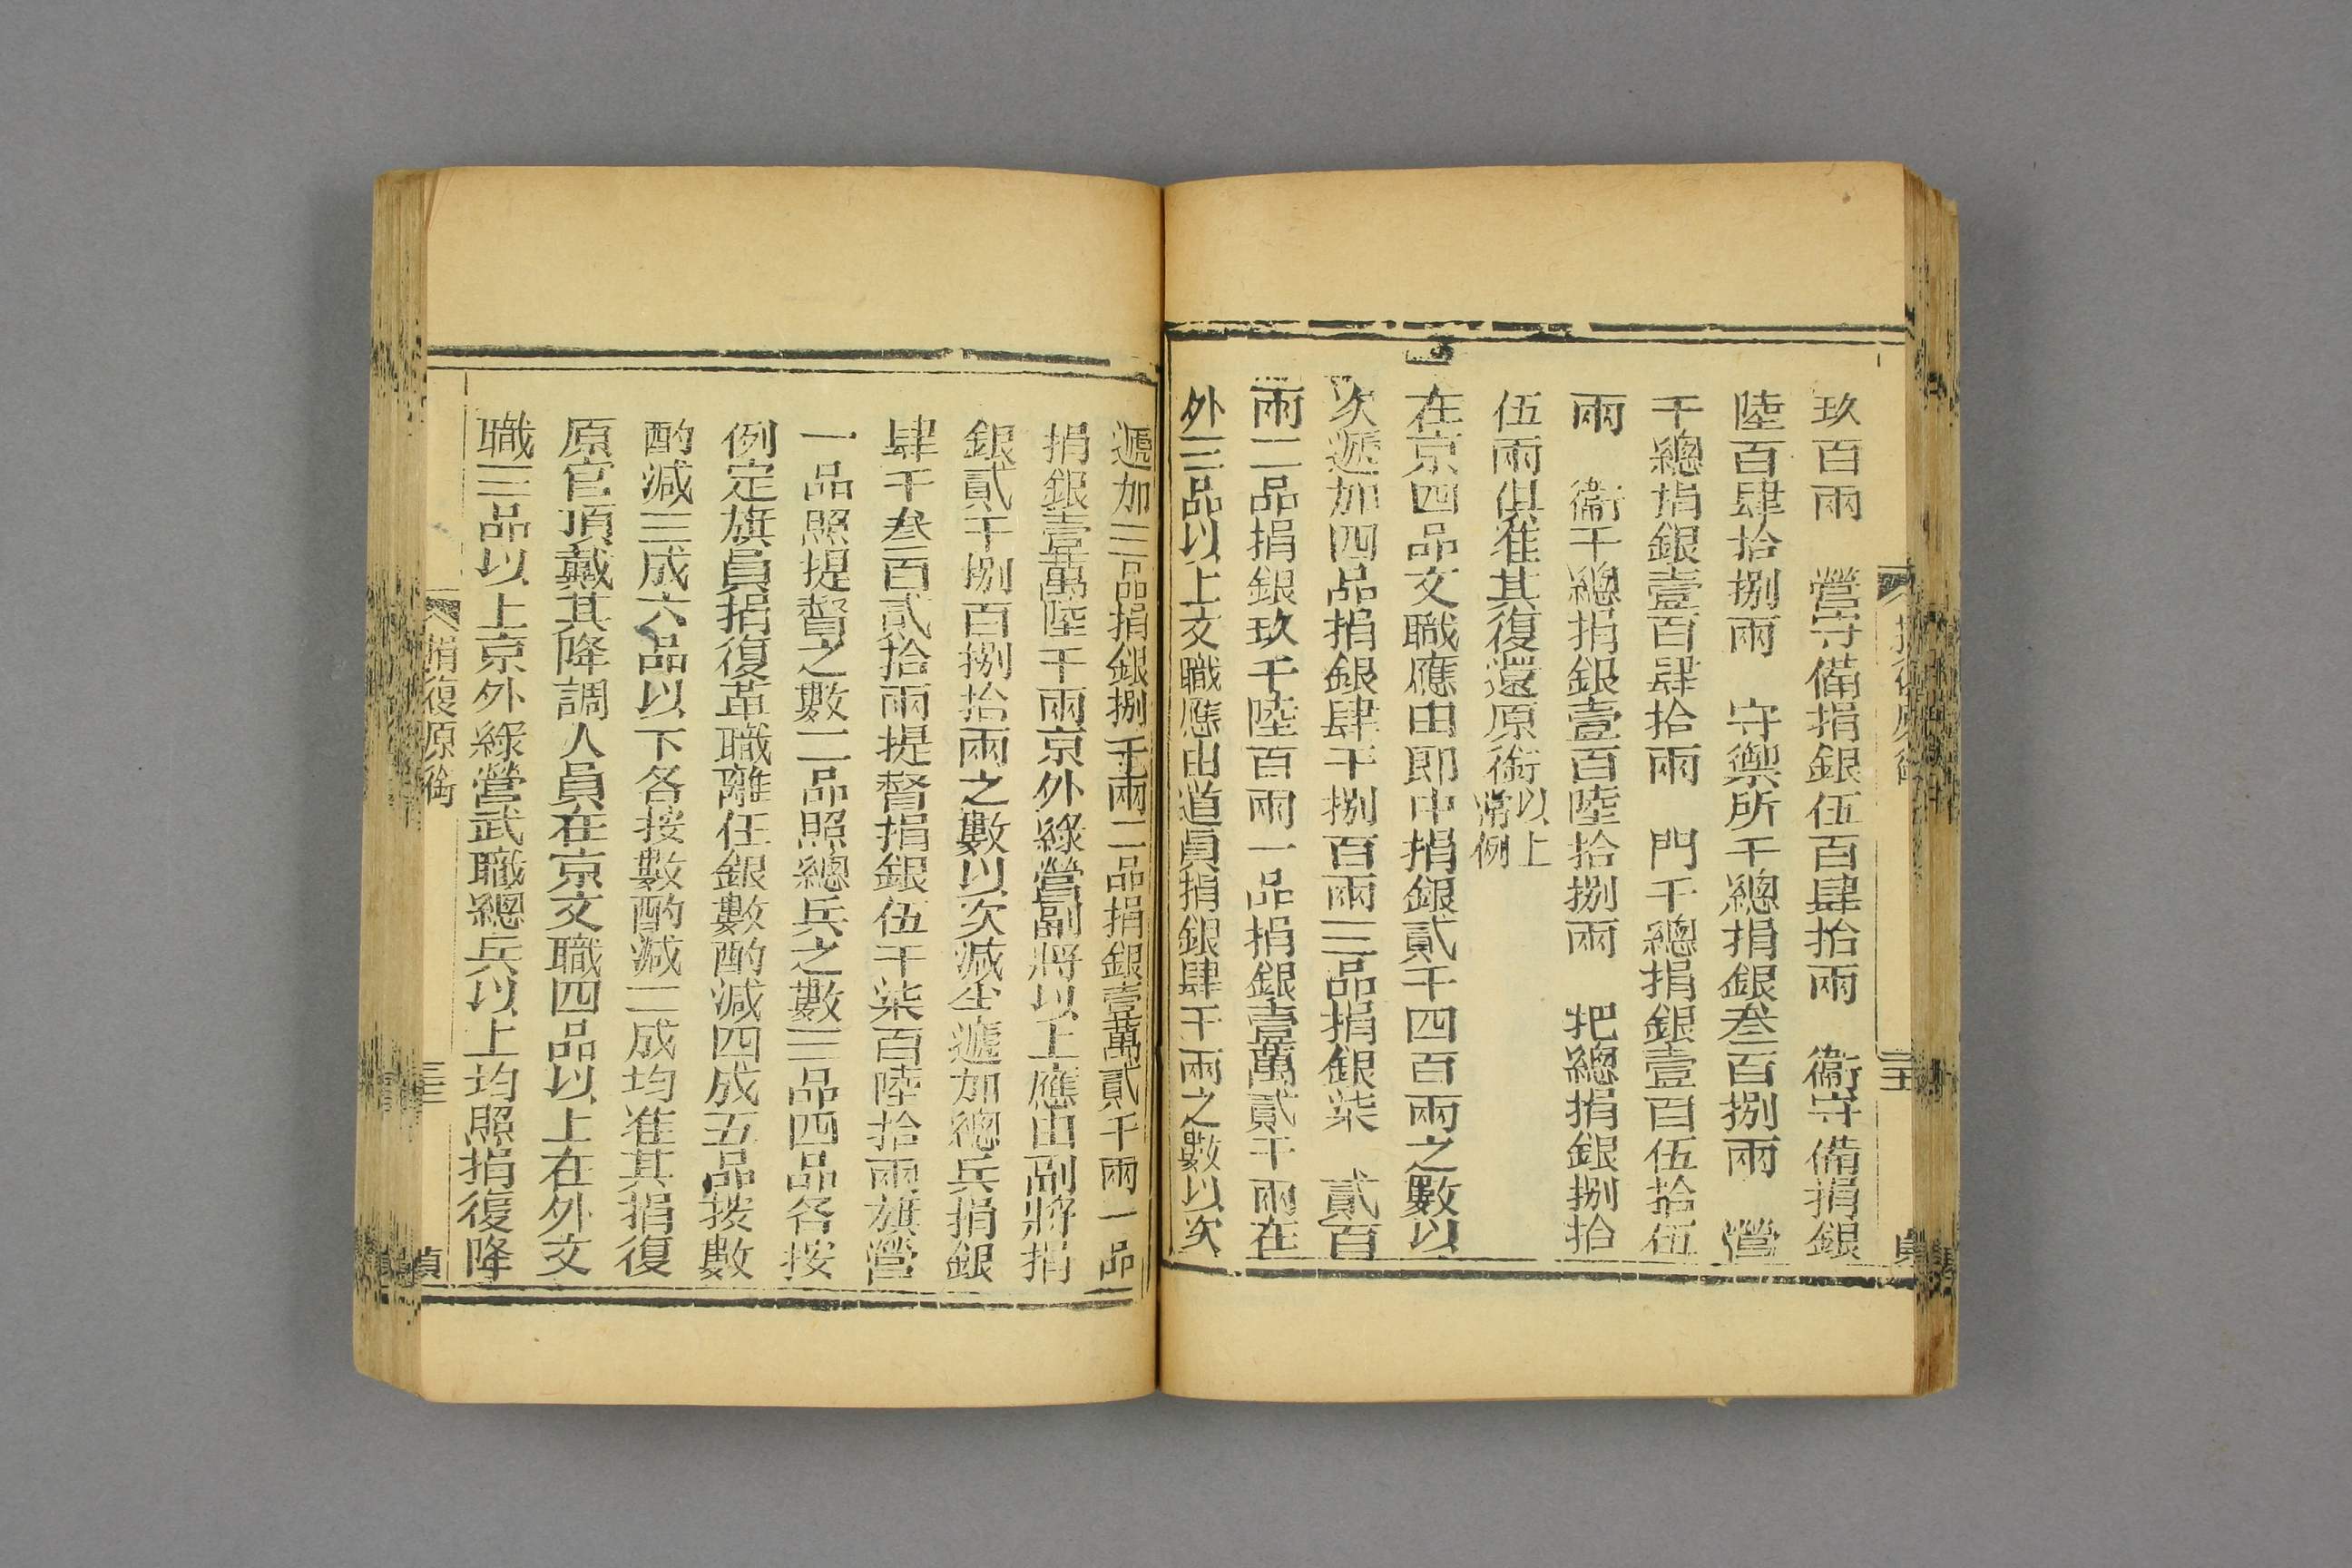 玖百兩　營守備捐銀伍百肆拾兩　衞守備捐銀
陸百肆拾捌兩　守禦所千總捐銀叁百捌兩　營
千總捐銀壹百肆拾兩　門千總捐銀壹百伍拾伍
兩　衞千總捐銀壹百陸拾捌兩　把總捐銀捌拾
伍兩俱准其復還原銜以上常例
在京四品文職應由郎中捐銀貳千四百兩之數以
次遞加四品捐銀肆千捌百兩三品捐銀柒　貳百
兩二品捐銀玖千陸百兩一品捐銀壹萬貳千兩在
外三品以上文職應由道員捐銀肆千兩之數以次
遞加三品捐銀捌千兩二品捐銀壹萬貳千兩一品
捐銀壹萬陸千兩京外綠營副將以上應由副將捐
銀貳千捌百捌拾兩之數以次減半遞加總兵捐銀
肆千叁百貳拾兩提督捐銀伍千柒百陸拾兩旗營
一品照提督之數二品照總兵之數三品四品各按
例定旗員捐復革職離任銀數酌減四成五品按數
酌減三成六品以下各按數酌減二成均准其捐復
原官頂戴其降調人員在京文職四品以上在外文
職三品以上京外綠營武職總兵以上均照捐復降
捐復原銜